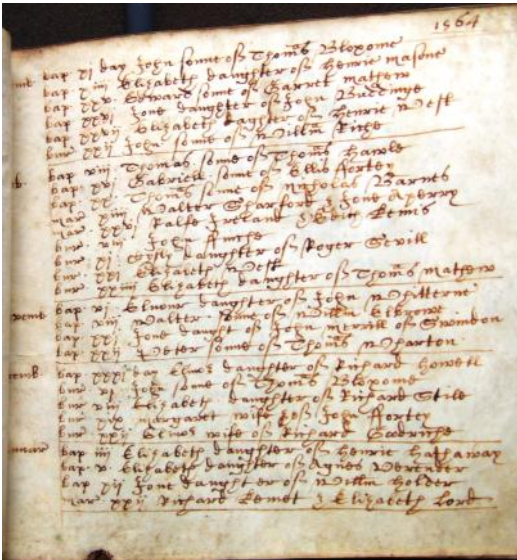 1564
bap xi day John sonne off Thoms Bloxome
bap xiii Elizabeth daughter off Henrie Masone
bap xxv Edward sonne off Garret Mathew
bap xxvi Jone daughter off John Buddinge
bap xxvii Elizabeth daughter off Henrie West
bur xxii John sonne off Willm Riche
bap viii Thomas sonne off Thoms Hawle
bap xvi Gabriell sonne off Ellis Fortey
bap xx Thoms sonne off Nicholas Barnes
mar xiiii Walter Sharford & Jone Aperry
mar xxv Ralfe Ireland & Kemis
bur vii John
bur xi daughter off Roger Sevill
bur xvi Elizabeth West
bur xxiiii Elizabeth daughter off Thoms Mathew
bap vi Elnour daughter off John Whitterne
bap xiii Walter sonne off Willm
bap xxi Jone daught off John Merrill off Swindon
bap xxii Peter sonne off Thoms Wharton
bap xxxi day daughter off Richard Howell
bur vi John sonne off Thoms Bloxome
bur viii Elizabeth daughter off Richard Stile
bur xix Margaret wife off John Fortey
bur xxii wife off Richard Goodriche
bap iiii Elizabeth daughter off Henrie Hathaway
bap v Elizabeth daughter off Agnes
bap xii Jone daughter off Willm Holder
mar xxii Richard Kemet & Elizabeth Lord